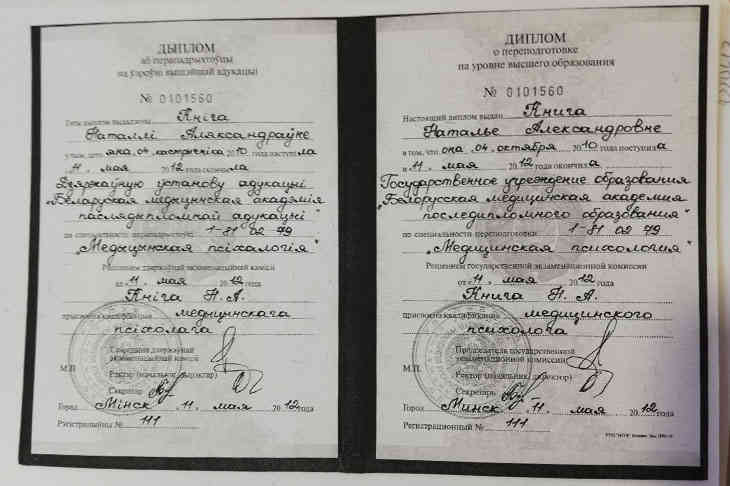 ДЫПЛОМ
аб перападрыхтоўцы
на ўзроўні вышэйшай адукацыі
№ 0101560
Гэты дыплом выдадзены Кніга
Наталлі Аляксандраўне
у тым, што яна, 04 кастрычніка 2010 года паступіла
11 мая 2012 скончыла
Дзяржаўную ўстанову адукацыі
"Беларуская медыцынская акадэмія
паслядыпломнай адукацыі"
па спецыяльнасці перападрыхтоўкі 1-81 02 79
"Медыцынская псіхалогія"
Рашэннем дзяржаўнай экзаменацыйнай камісіі
ад 11 мая 2012 года
Кніга Н.А.
прысвоена кваліфікацыя медыцынскага
псіхолага
Старшыня дзяржаўнай
экзаменацыйнай камісіі
М.П.
Рэктар (начальнік, дырэктар)
Сакратар
Горад Мінск 11 мая 2012 года
Рэгістрацыйны № 111
ДИПЛОМ
о переподготовке
на уровне высшего образования
№ 0101560
Настоящий диплом выдан Книга
Наталье Александровне
в том, что она 04 октября 2010 года поступила
и 11 мая 2012 окончила
Государственное учреждение образования
"Белорусская медицинская академия
последипломного образования"
по специальности переподготовки 1-81 02 79
"Медицинская психология"
Решением государственной экзаменационной комиссии
от 11 мая 2012 года
Книга Н.А.
присвоена квалификация медицинского
психолога
Председатель государственной
экзаменационной комиссии
М.П.
Ректор (начальник, директор)
Секретарь
Город Минск 11 мая 2012 года
Регистрационный № 111